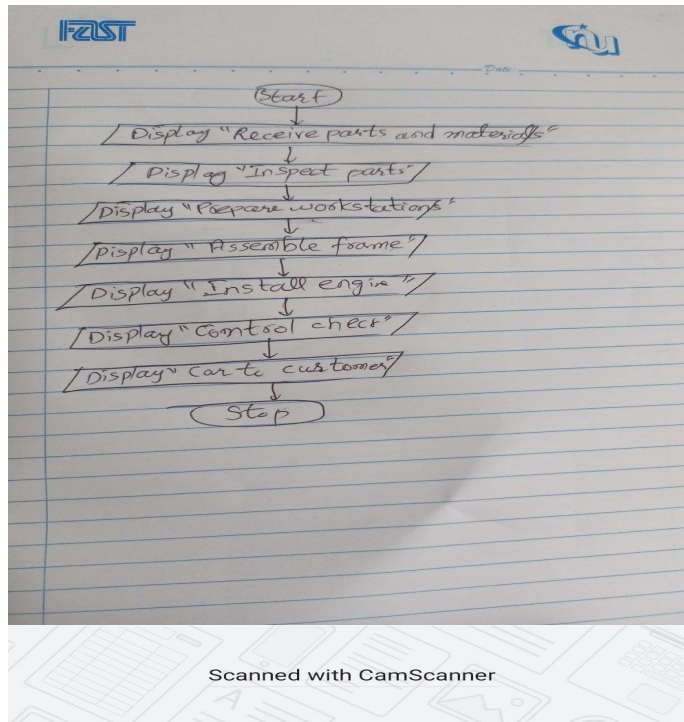 FAST
nu
Date:
Start
Display "Receive parts and materials"
Display "Inspect parts"
Display "Prepare workstations"
Display "Assemble frame"
Display "Install engine"
Display "Control check"
Display "Car to customer"
Stop
Scanned with CamScanner